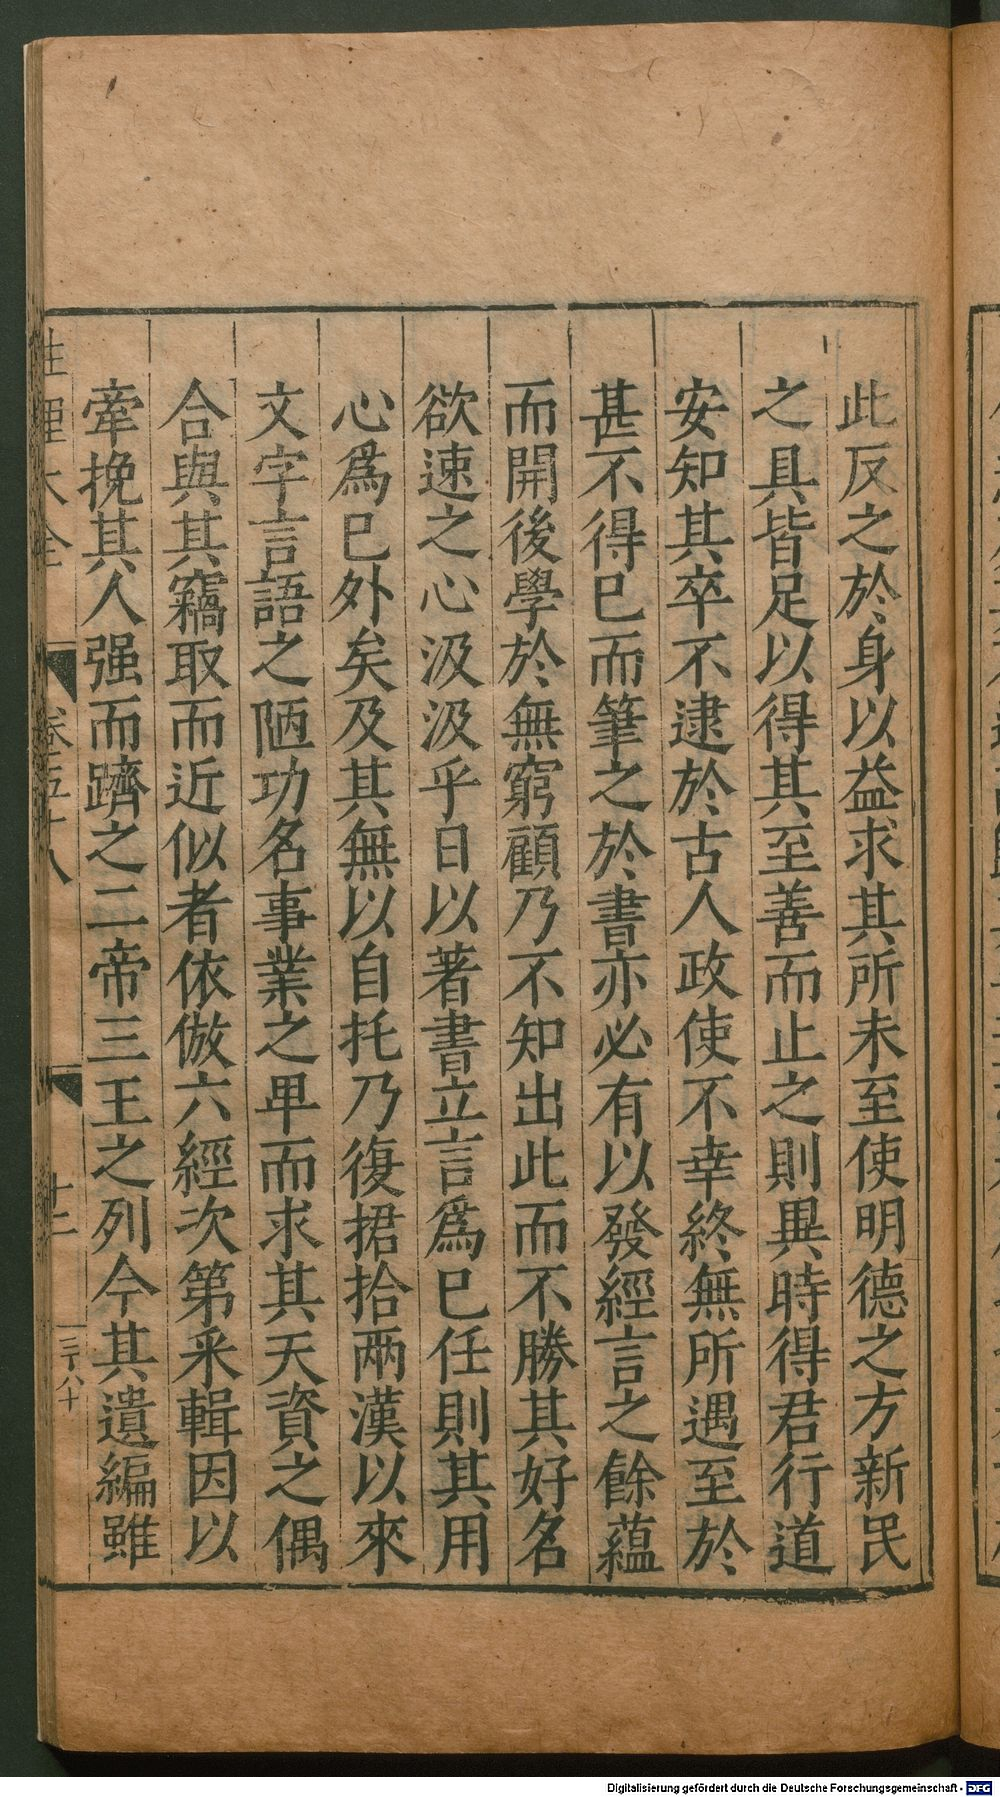 此反之於身以益求其所未至使明德之方新民
之具皆足以得其至善而止之則異時得君行道
安知其卒不逮於古人政使不幸終無所遇至於
甚不得已而筆之於書亦必有以發經言之餘蘊
而開後學於無窮顧乃不知出此而不勝其好名
欲速之心汲汲乎日以著書立言爲已任則其用
心爲已外矣及其無以自托乃復捃拾兩漢以來
文字言語之陋功名事業之卑而求其天資之偶
合與其竊取而近似者依倣六經次第采輯因以
牽挽其人强而躋之二帝三王之列今其遺編雖
性理大全 卷五十八 十二
Digitalisierung gefördert durch die Deutsche Forschungsgemeinschaft - DFG